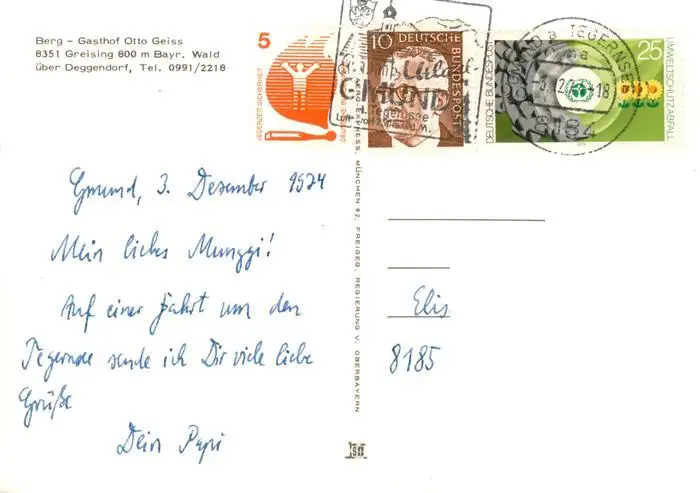 Berg – Gasthof Otto Geiss
8351 Greising 800 m Bayr. Wald
über Deggendorf, Tel. 0991/2218
5
JEDERZEIT SICHERHEIT
10
DEUTSCHE BUNDESPOST
GMUND
a. Tegernsee
DEUTSCHE BUNDESPOST
25
UMWELTSCHUTZ:ABFALL
GMUND a. TEGERNSEE
-18
8184
AERO-EXPRESS, MÜNCHEN 82, FREIGEG. REGIERUNG V. OBERBAYERN
Gmund, 3. Dezember 1974
Mein liebes Munggi!
Auf einer Fahrt um den
Tegernsee sende ich Dir viele liebe
Grüße
Dein Papi
Elis
8185